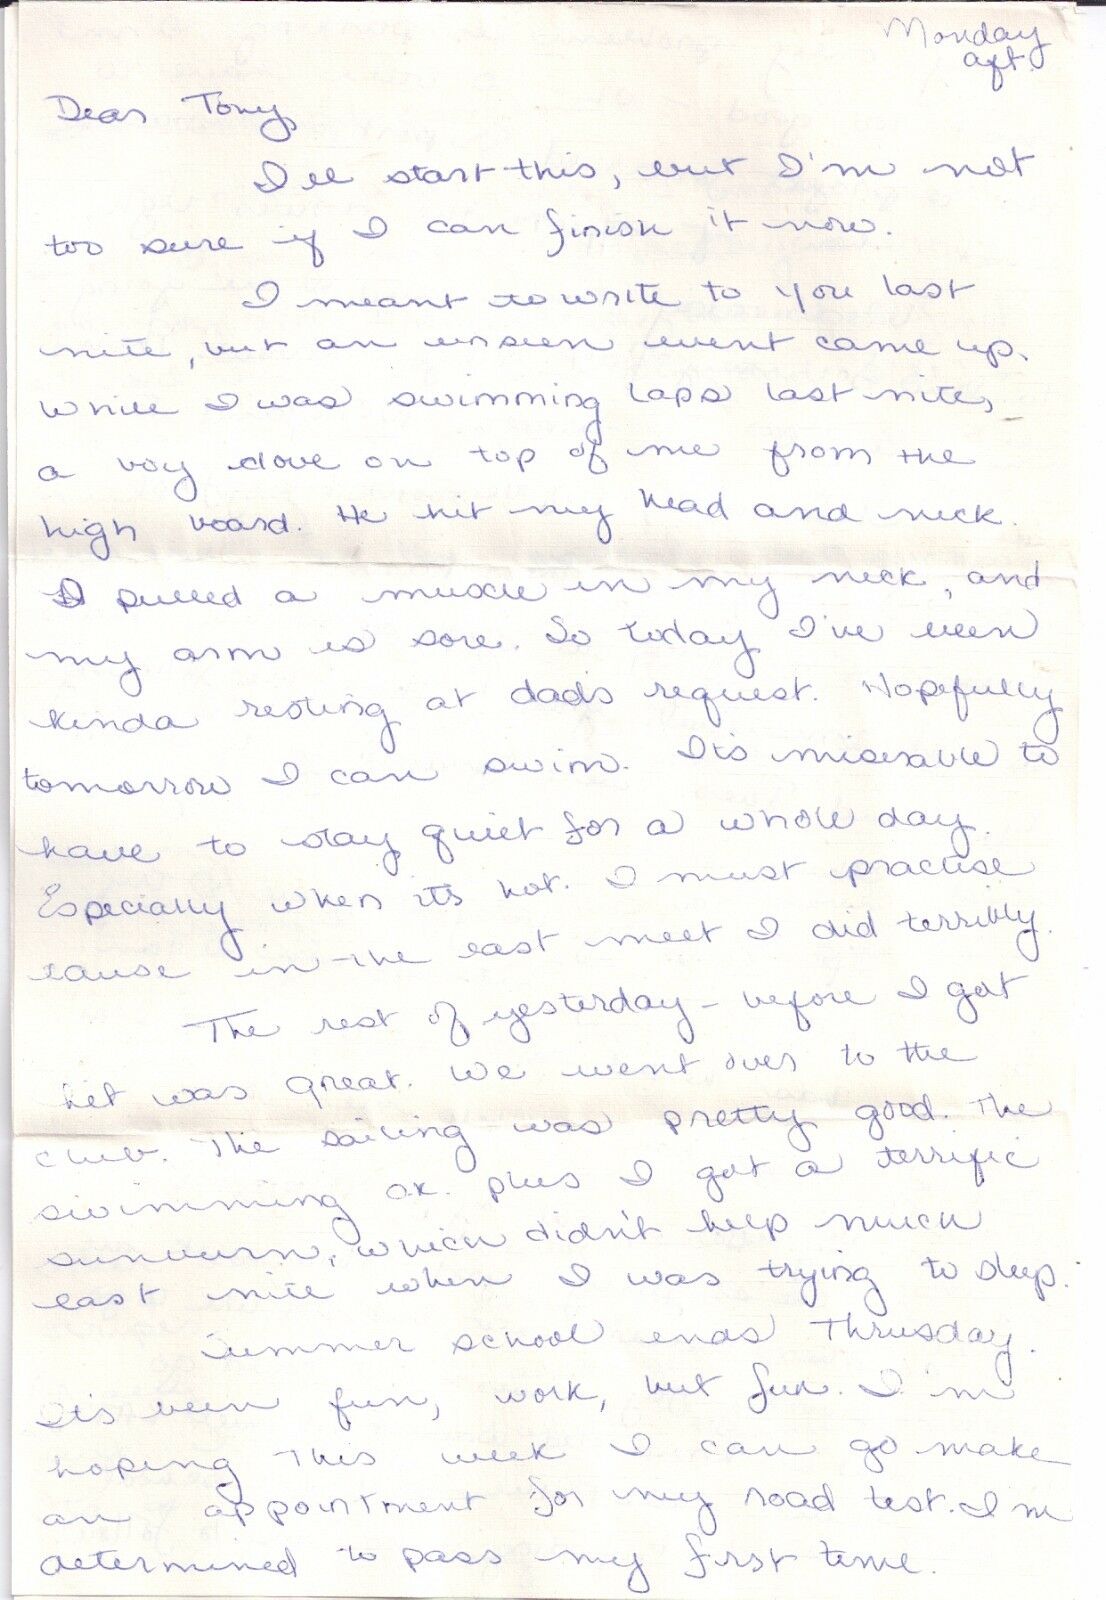 Monday
aft.
Dear Tony,
I'll start this, but I'm not
too sure if I can finish it now.
I meant to write to you last
nite, but an unseen event came up.
While I was swimming laps last nite,
a boy dove on top of me from the
high board. He hit my head and neck.
I pulled a muscle in my neck, and
my arm is sore. So today I've been
kinda resting at dad's request. Hopefully
tomorrow I can swim. It's miserable to
have to stay quiet for a whole day.
Especially when it's hot. I must practise
cause in the last meet I did terribly.
The rest of yesterday - before I got
hit was great. We went over to the
club. The sailing was pretty good. The
swimming o.k. plus I got a terrific
sunburn, which didn't help much
last nite when I was trying to sleep.
Summer school ends Thrusday.
It's been fun, work, but fun. I'm
hoping this week I can go make
an appointment for my road test. I'm
determined to pass my first time.